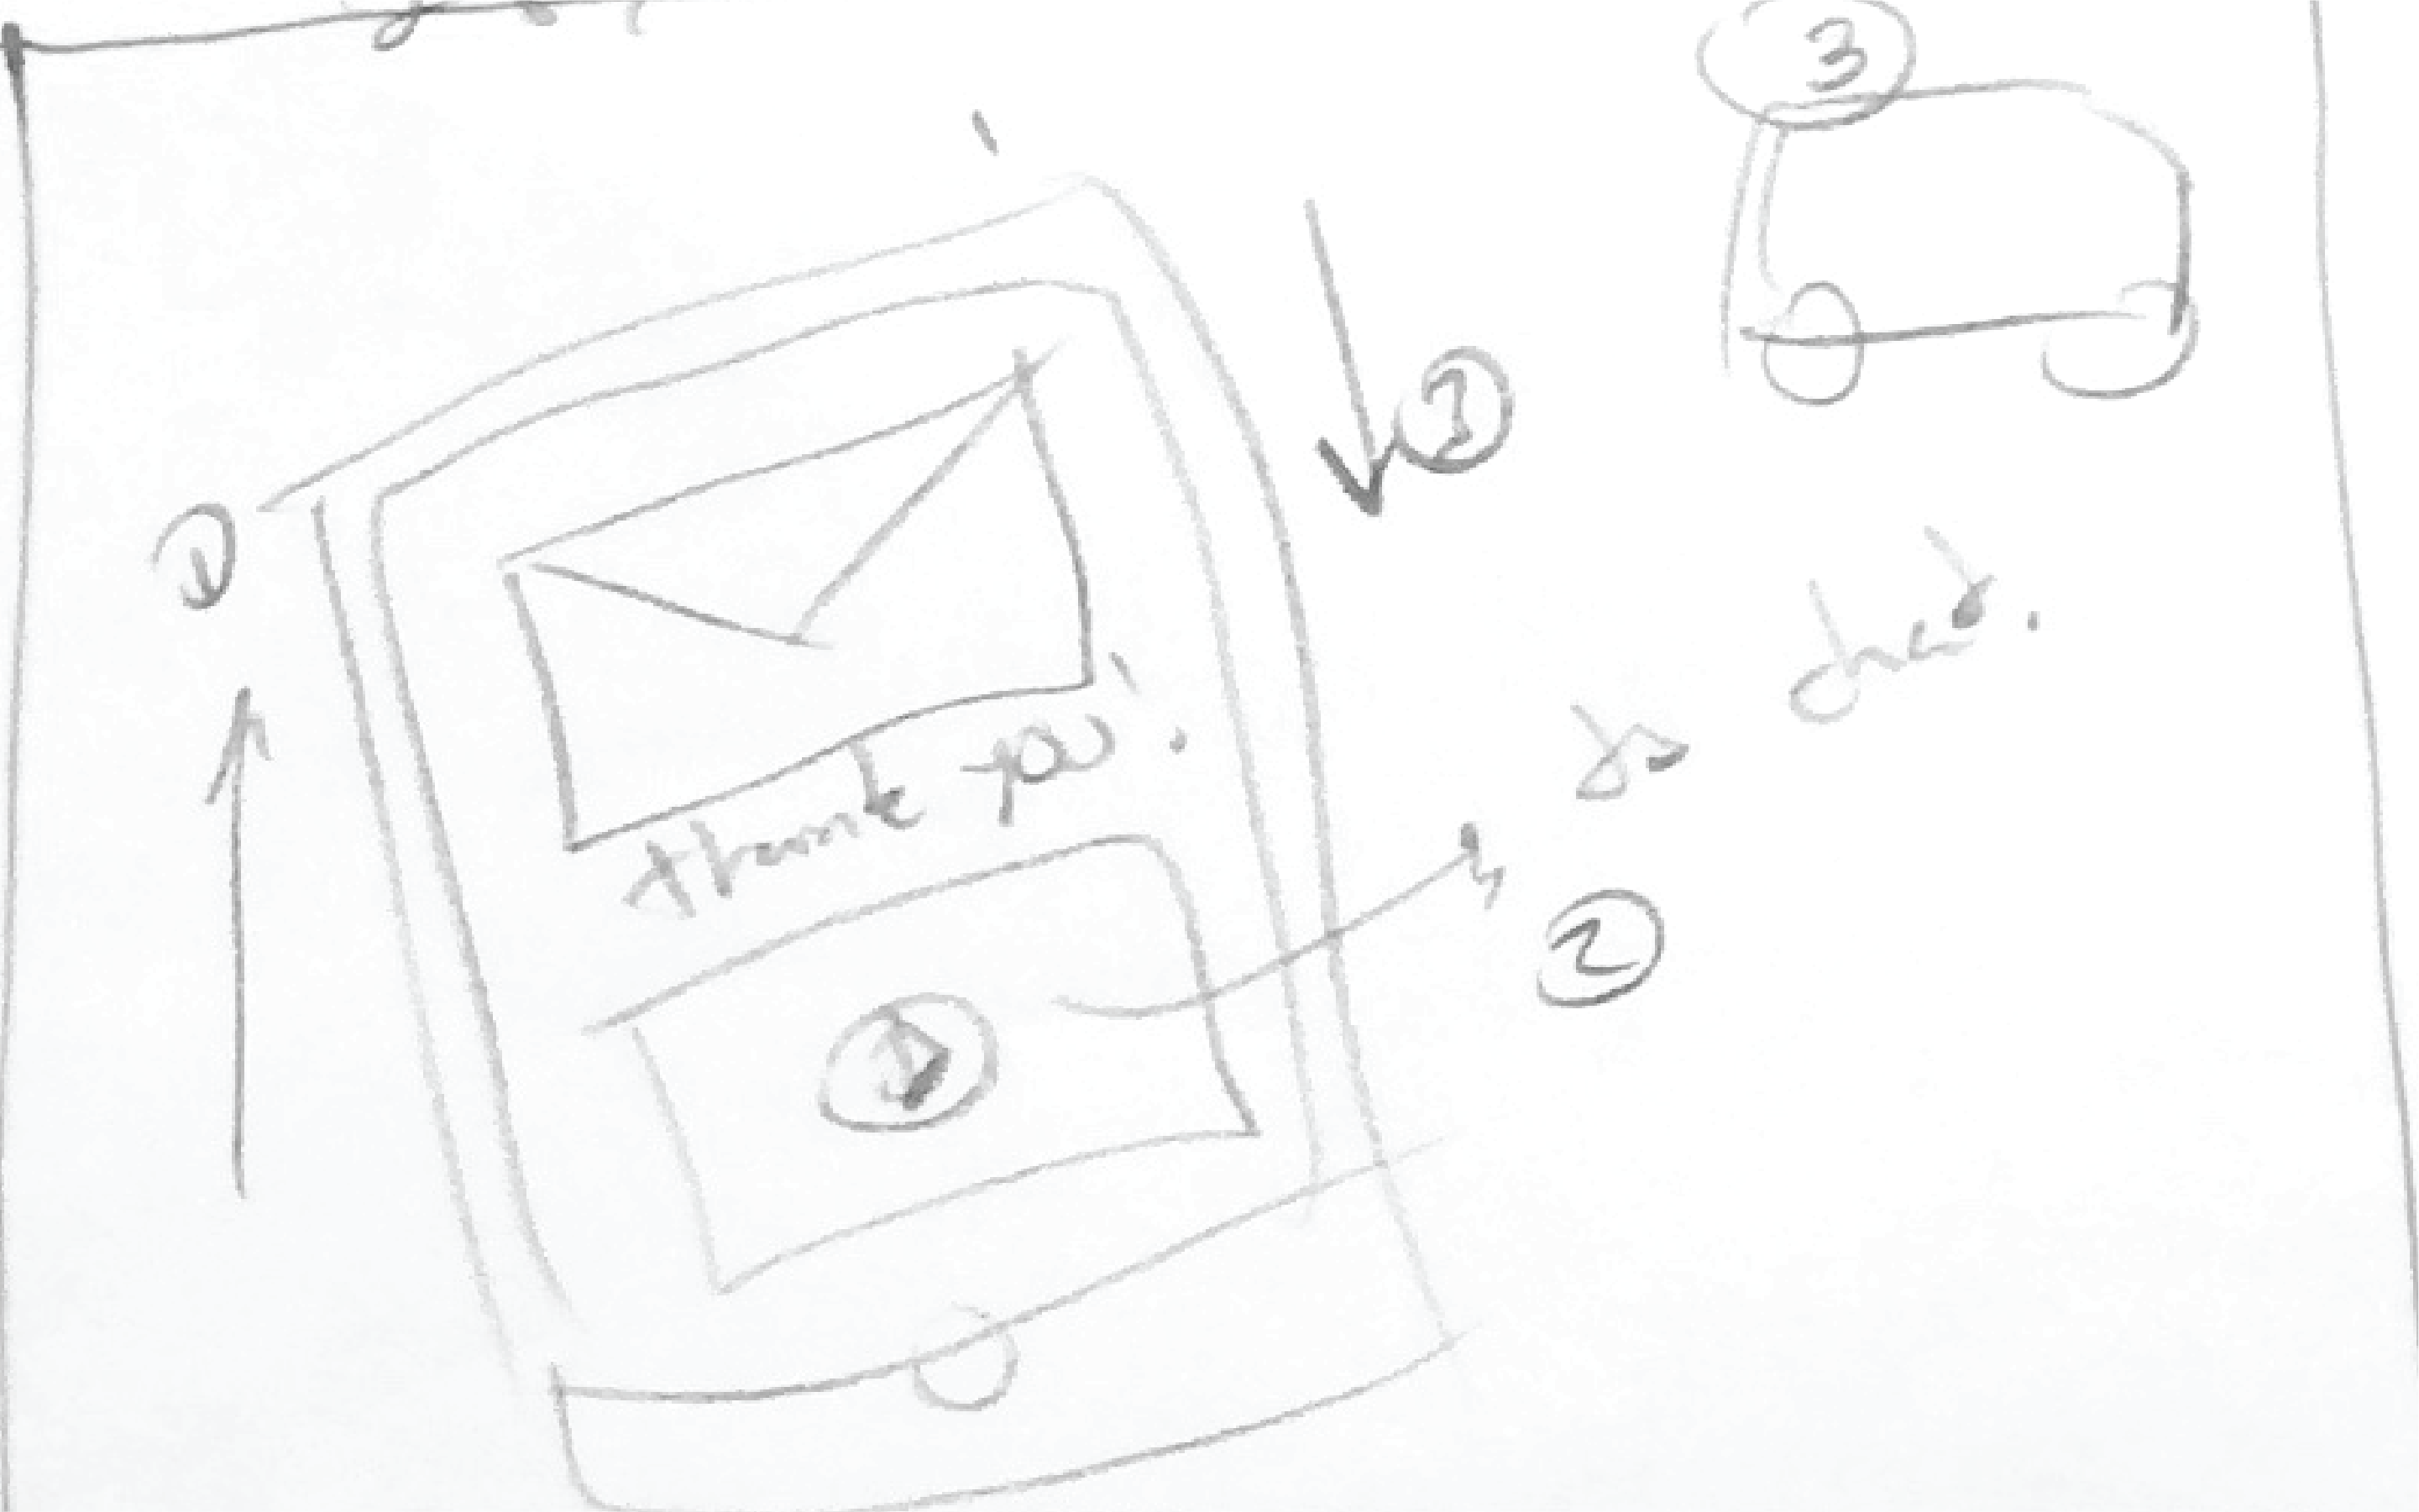 3
1
1
Thank you!
to chat.
2